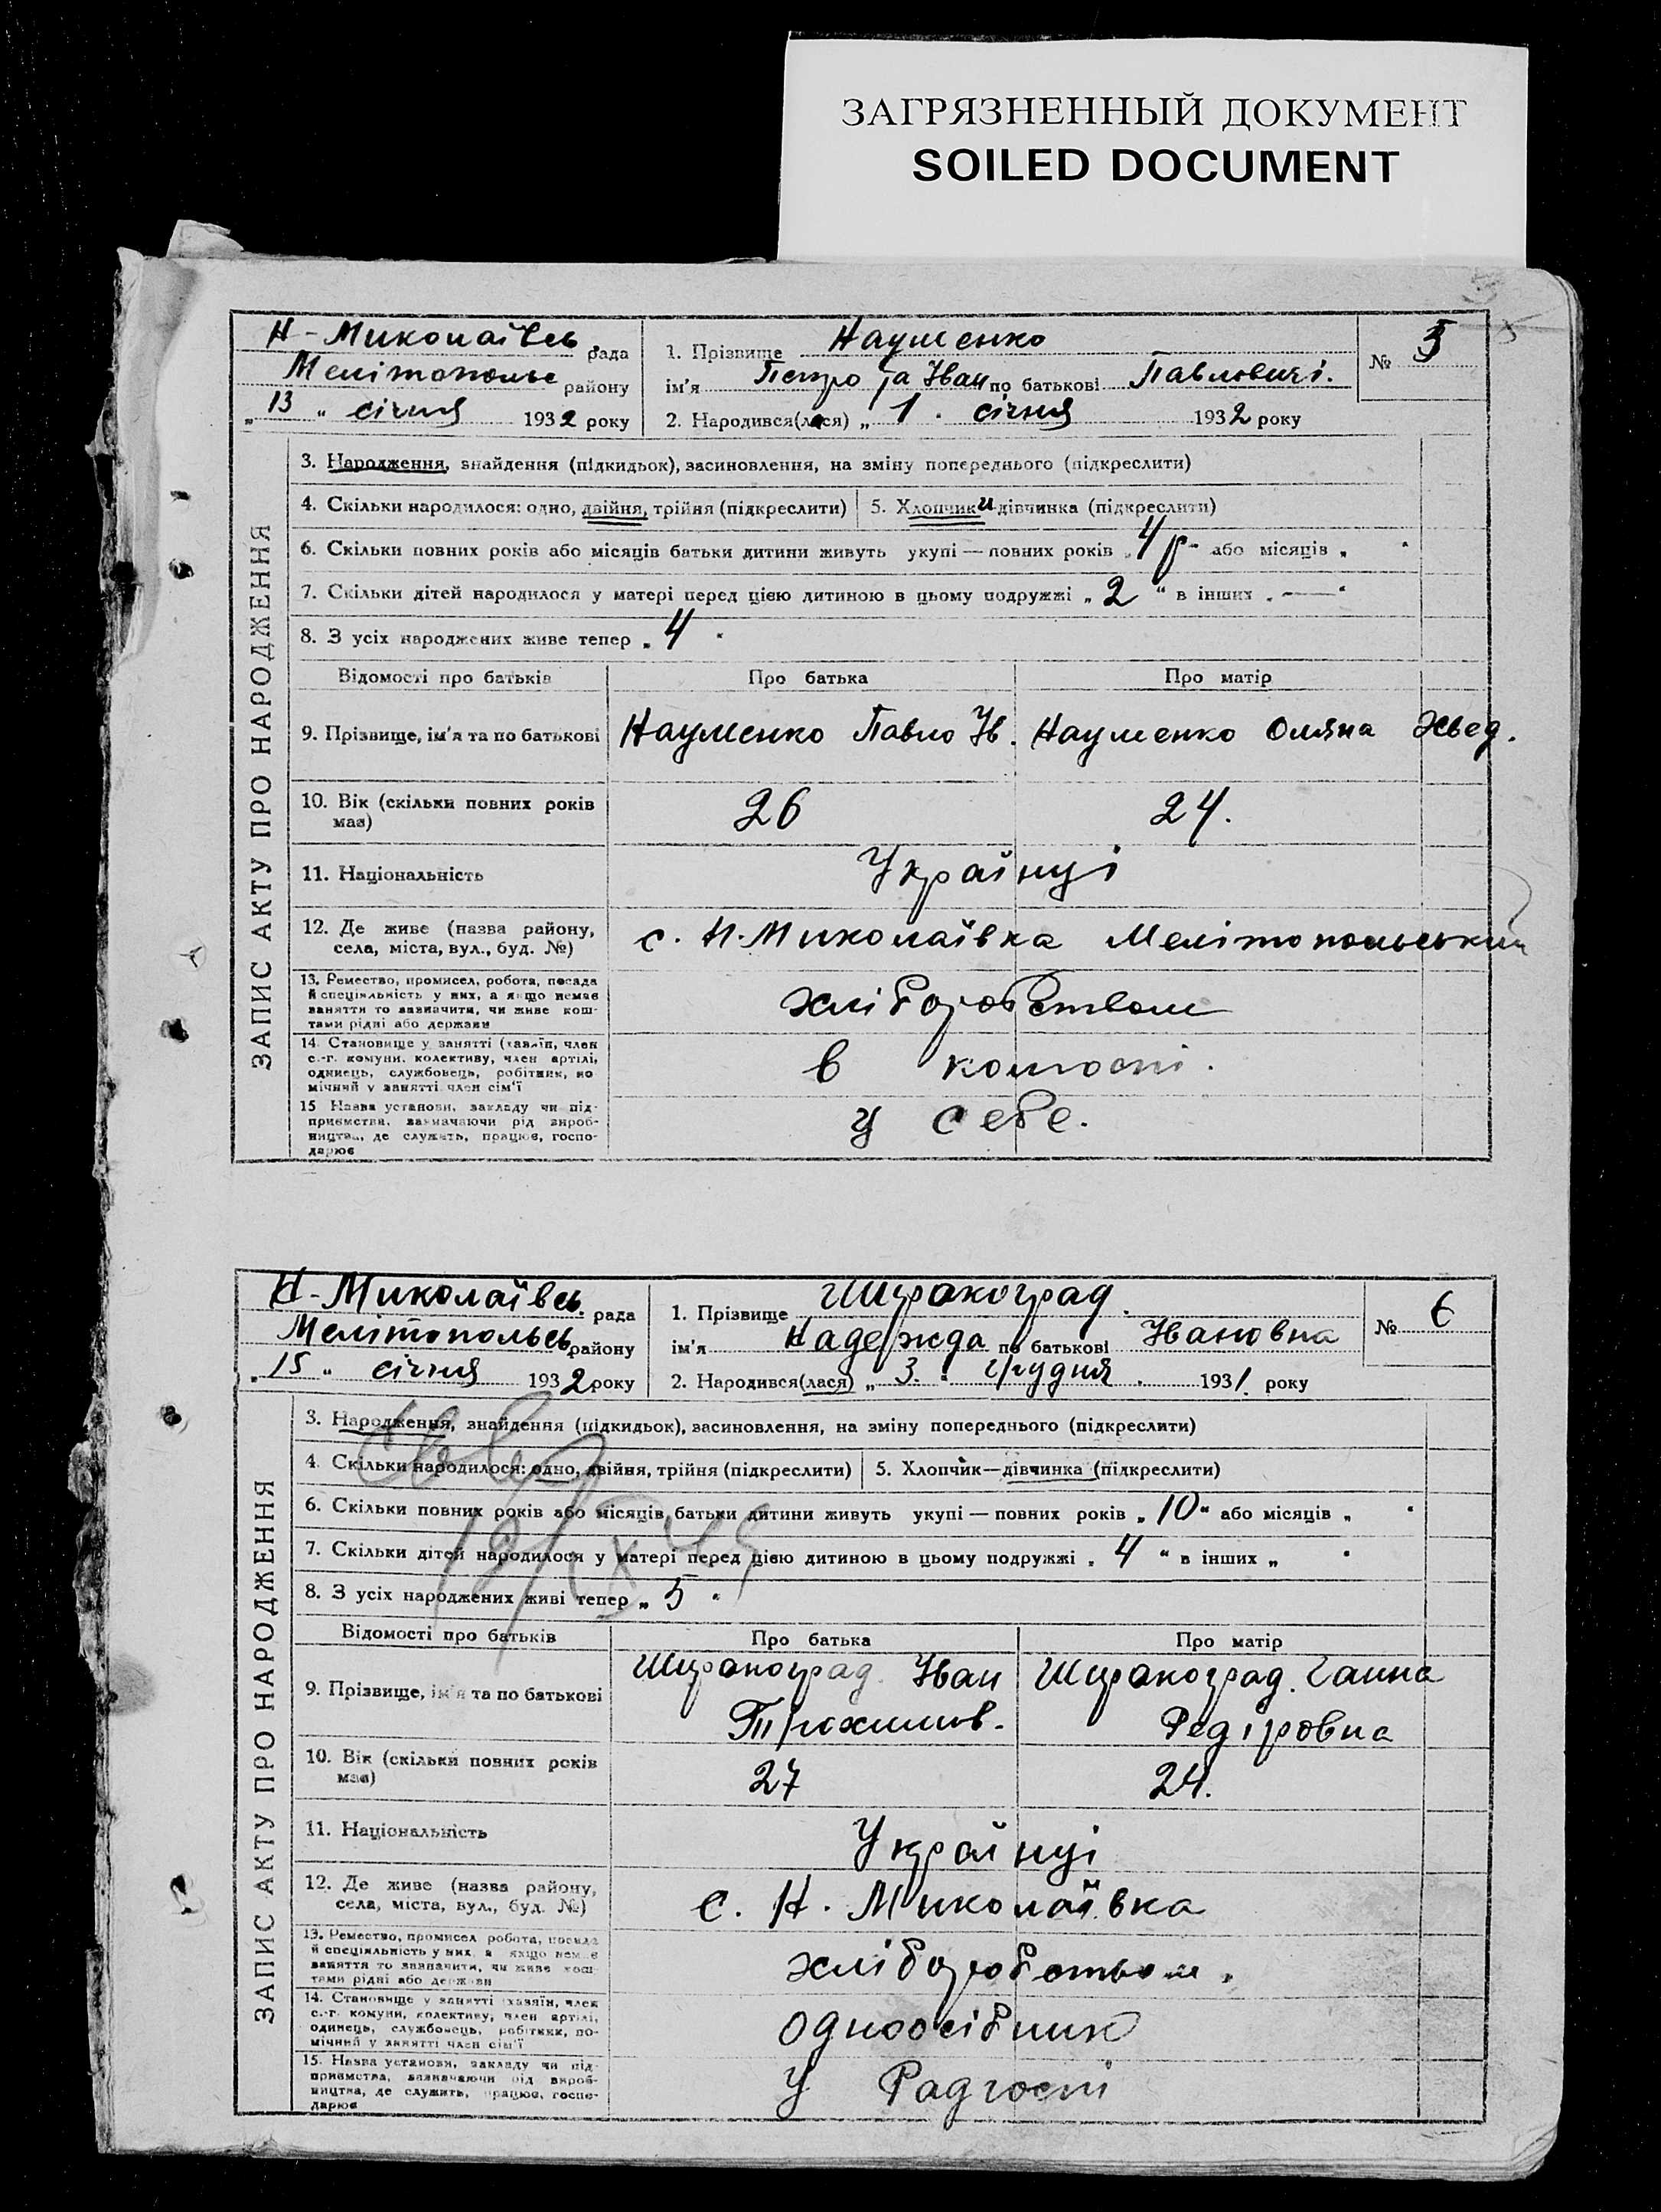 ЗАГРЯЗНЕННЫЙ ДОКУМЕНТ
SOILED DOCUMENT
ЗАПИС АКТУ ПРО НАРОДЖЕННЯ
Н-Миколаївсь. рада
Мелітопольс району
„13“ січня 1932 року
1. Прізвище Науменко
ім'я Петро та Іван по батькові Павловичі.
2. Народився(лася) „1. січня 1932 року
№ 5
3. Народження, знайдення (підкидьок), засиновлення, на зміну попереднього (підкреслити)
4. Скільки народилося: одно, двійня, трійня (підкреслити)
5. Хлопчики дівчинка (підкреслити)
6. Скільки повних років або місяців батьки дитини живуть укупі — повних років „4 р- або місяців „
7. Скільки дітей народилося у матері перед цією дитиною в цьому подружжі „2“ в інших „—“
8. З усіх народжених живе тепер „4“
Відомості про батьків Про батька Про матір
9. Прізвище, ім'я та по батькові Науменко Павло Ів. Науменко Оляна Хвед.
10. Вік (скільки повних років має) 26 24.
11. Національність Українці
12. Де живе (назва району, села, міста, вул., буд. №) с. Н. Миколаївка Мелітопольський
13. Ремество, промисел, робота, посада
й спеціяльність у них, а якщо немає
заняття то зазначити, чи живе кош-
тами рідні або держави
хліборобством
14. Становище у занятті (хазяїн, член
с.-г. комуни, колективу, член артілі,
одинець, службовець, робітник, по
мічний у занятті член сім'ї
в колгоспі.
15 Назва установи, закладу чи під-
приємства, зазначаючи рід вироб-
ництва, де служить, працює, госпо-
дарює
у себе.
ЗАПИС АКТУ ПРО НАРОДЖЕННЯ
Н-Миколаївсь. рада
Мелітопольсь району
„15“ січня 1932 року
1. Прізвище Широкоград.
ім'я Надежда по батькові Івановна
2. Народився(лася) „3. грудня 1931. року
№ 6
3. Народження, знайдення (підкидьок), засиновлення, на зміну попереднього (підкреслити)
4. Скільки народилося: одно, двійня, трійня (підкреслити)
5. Хлопчик—дівчинка (підкреслити)
6. Скільки повних років або місяців батьки дитини живуть укупі — повних років „10“ або місяців „
7. Скільки дітей народилося у матері перед цією дитиною в цьому подружжі „4“ в інших „
8. З усіх народжених живі тепер „5“
Відомості про батьків Про батька Про матір
9. Прізвище, ім'я та по батькові
Широкоград Іван
Трохимов.
Широкоград. Ганна
Федіровна
10. Вік (скільки повних років має) 27 24.
11. Національність Українці
12. Де живе (назва району, села, міста, вул., буд. №) с. Н. Миколаївка
13. Ремество, промисел робота, посада
й спеціяльність у них а якщо немає
заняття то зазначити, чи живе кош-
тами рідні або держави
хліборобством.
14. Становище у занятті (хазяїн, член
с.-г. комуни, колективу, член артілі,
одинець, службовець, робітник, по-
мічний у занятті член сім'ї
одноосібник
15. Назва установи, закладу чи під-
приємства, зазначаючи рід вироб-
ництва, де служить, працює, госпо-
дарює
у Радгоспі